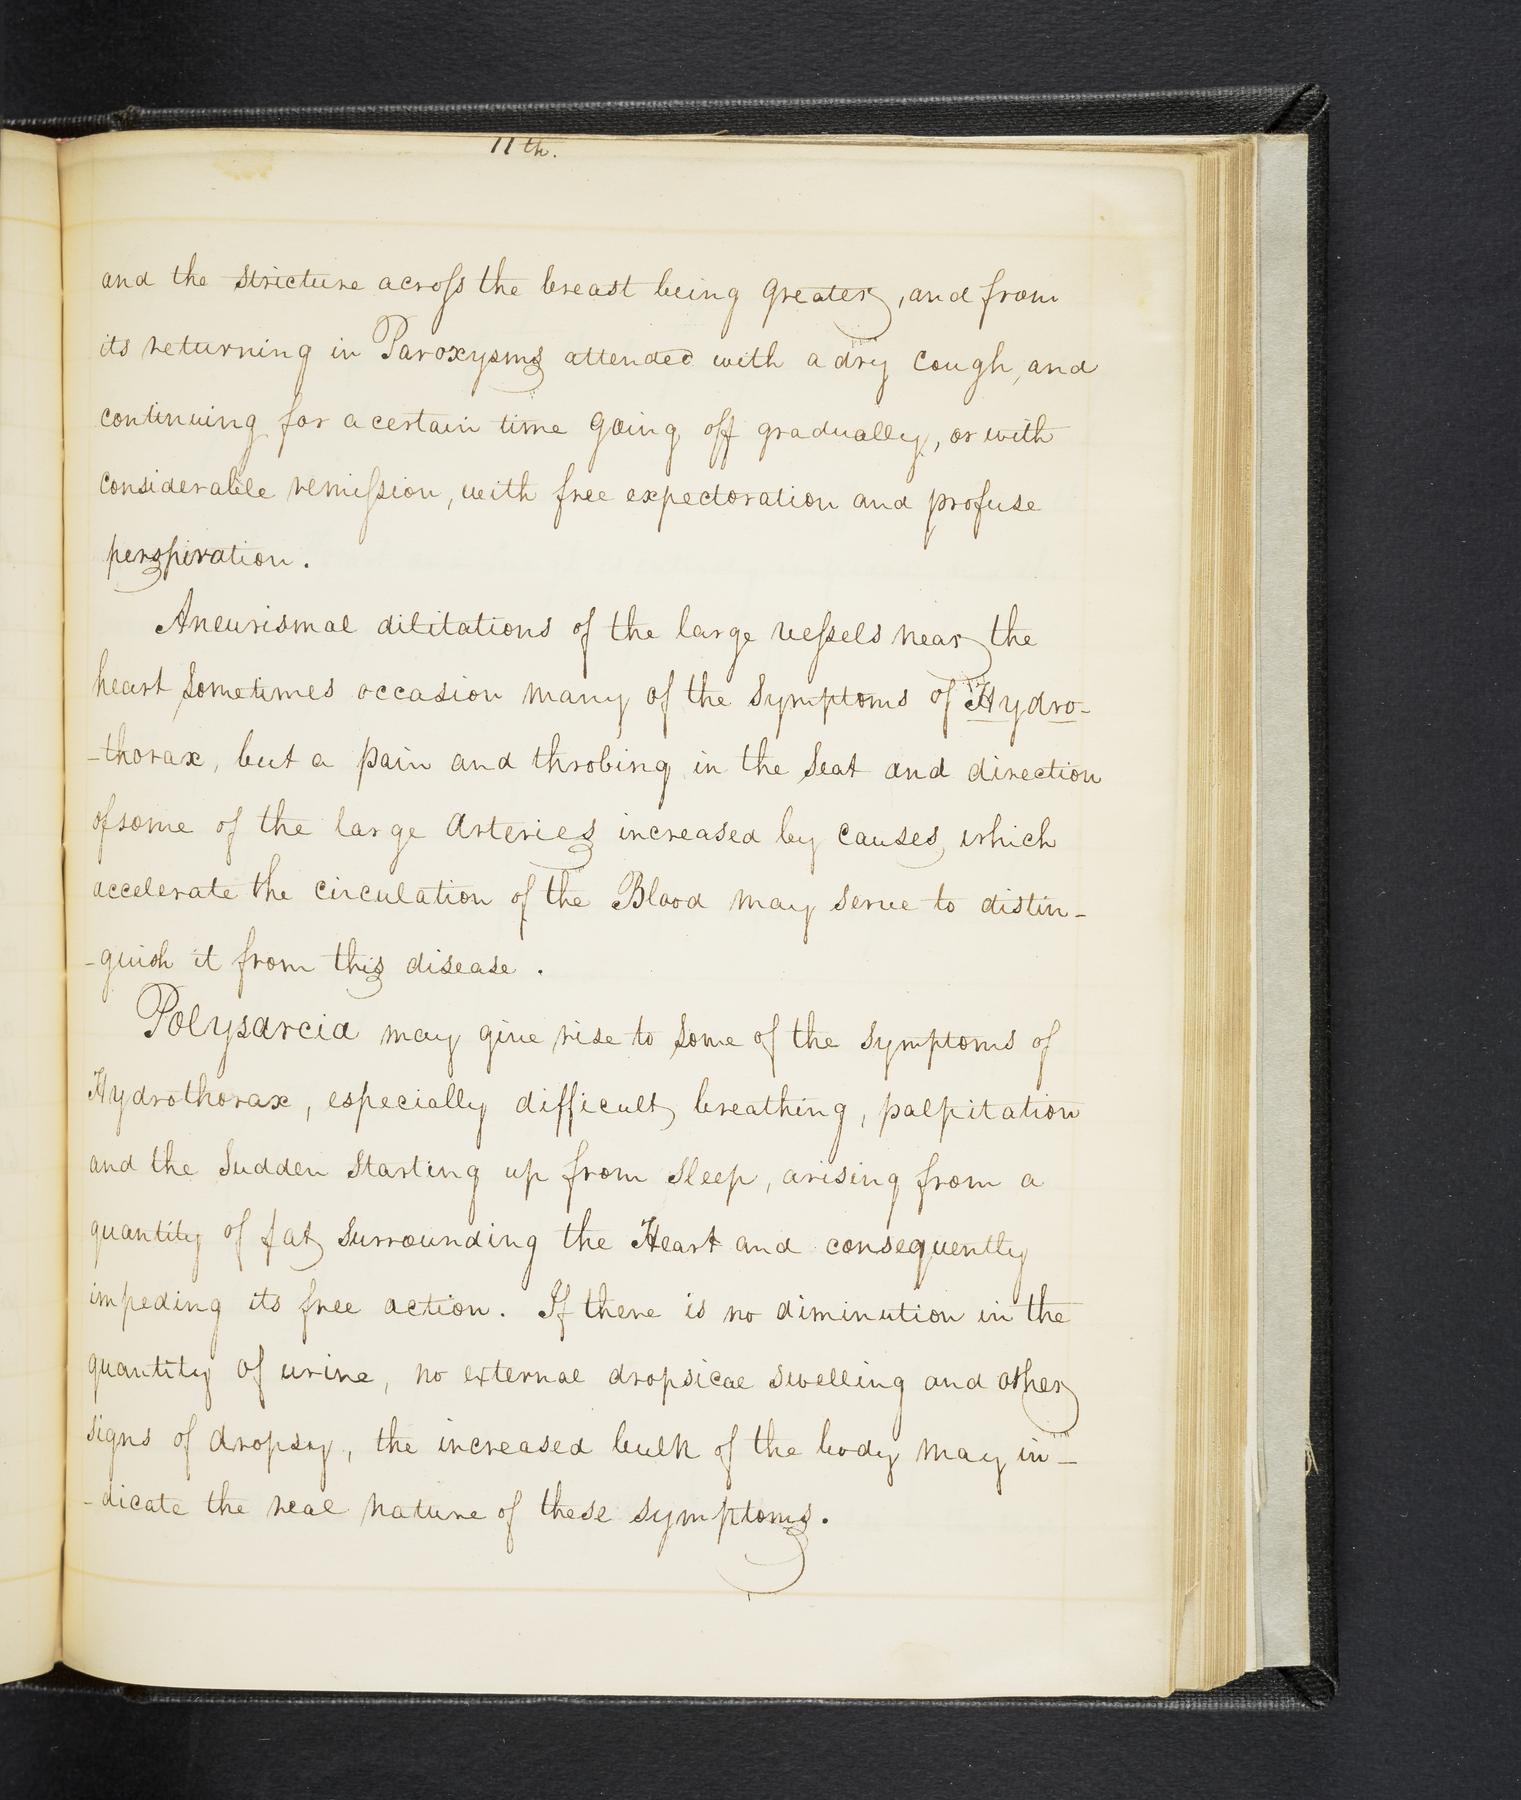 11th.
and the stricture across the breast being greater, and from
its returning in Paroxysms attended with a dry cough, and
continuing for a certain time going off gradually, or with
considerable remission, with free expectoration and profuse
perspiration.
Aneurismal dilitations of the large vessels near the
heart sometimes occasion many of the symptoms of Hydro-
-thorax, but a pain and throbing in the seat and direction
of some of the large arteries increased by causes which
accelerate the circulation of the Blood may serve to distin-
-guish it from this disease.
Polysarcia may give rise to some of the symptoms of
Hydrothorax, especially difficult breathing, palpitation
and the sudden starting up from sleep, arising from a
quantity of fat surrounding the Heart and consequently
impeding its free action. If there is no diminution in the
quantity of urine, no external dropsical swelling and other
signs of dropsy, the increased bulk of the body may in-
-dicate the real nature of these symptoms.